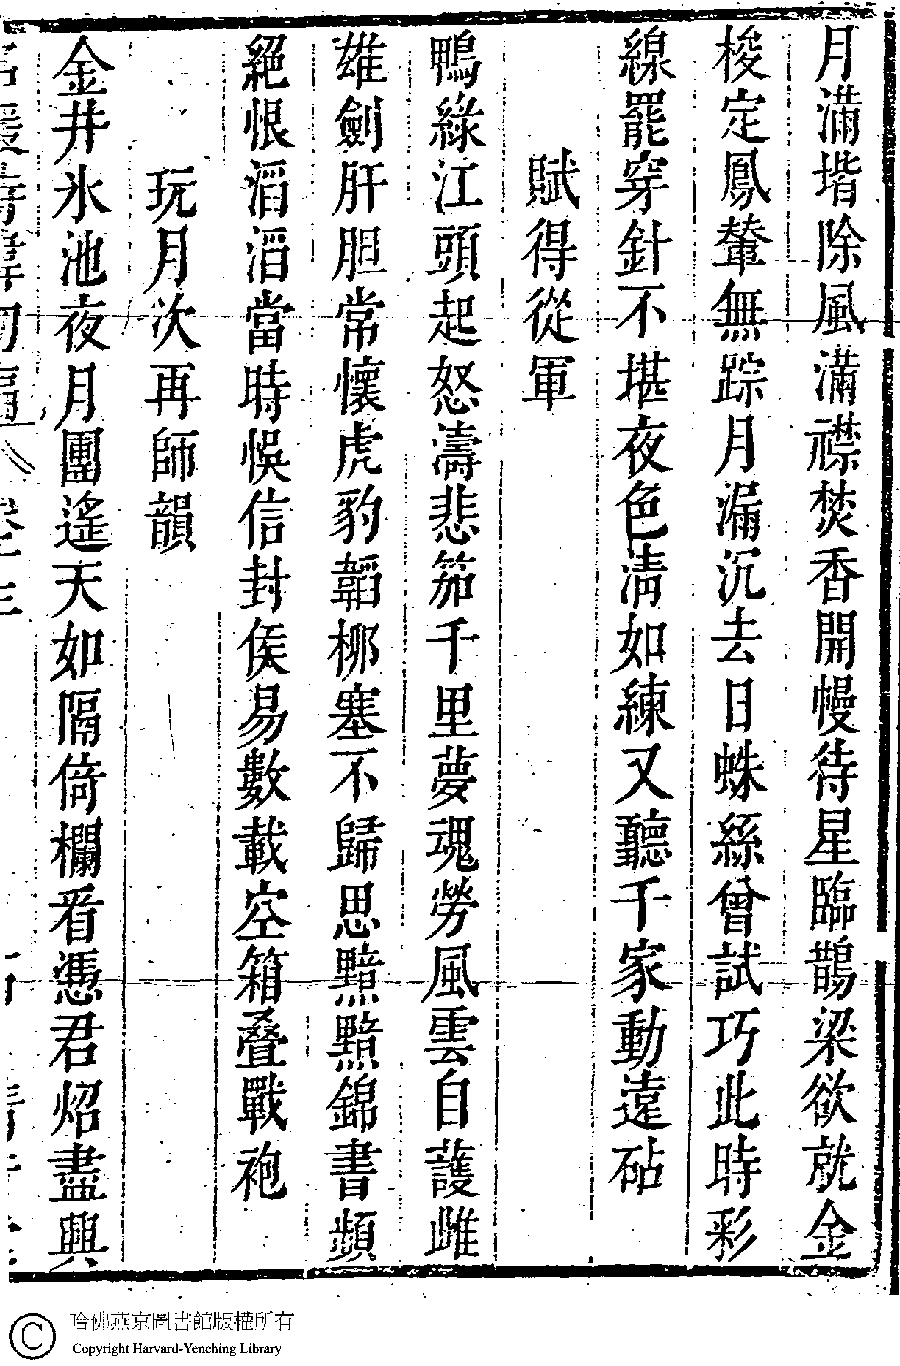 月滿堦除風滿襟焚香開幔待星臨鵲梁欲就金
梭定鳳輦無踪月漏沉去日蛛絲曾試巧此時彩
線罷穿針不堪夜色清如練又聽千家動遠砧
賦得從軍
鴨綠江頭起怒濤悲笳千里夢魂勞風雲自護雌
雄劍肝胆常懷虎豹韜桞塞不歸思黯黯錦書頻
絕恨滔滔當時悞信封侯易數載空箱叠戰袍
玩月次再師韻
金井氷池夜月團遙天如隔倚欄看憑君炤盡興
哈佛燕京圖書館版權所有
Copyright Harvard-Yenching Library